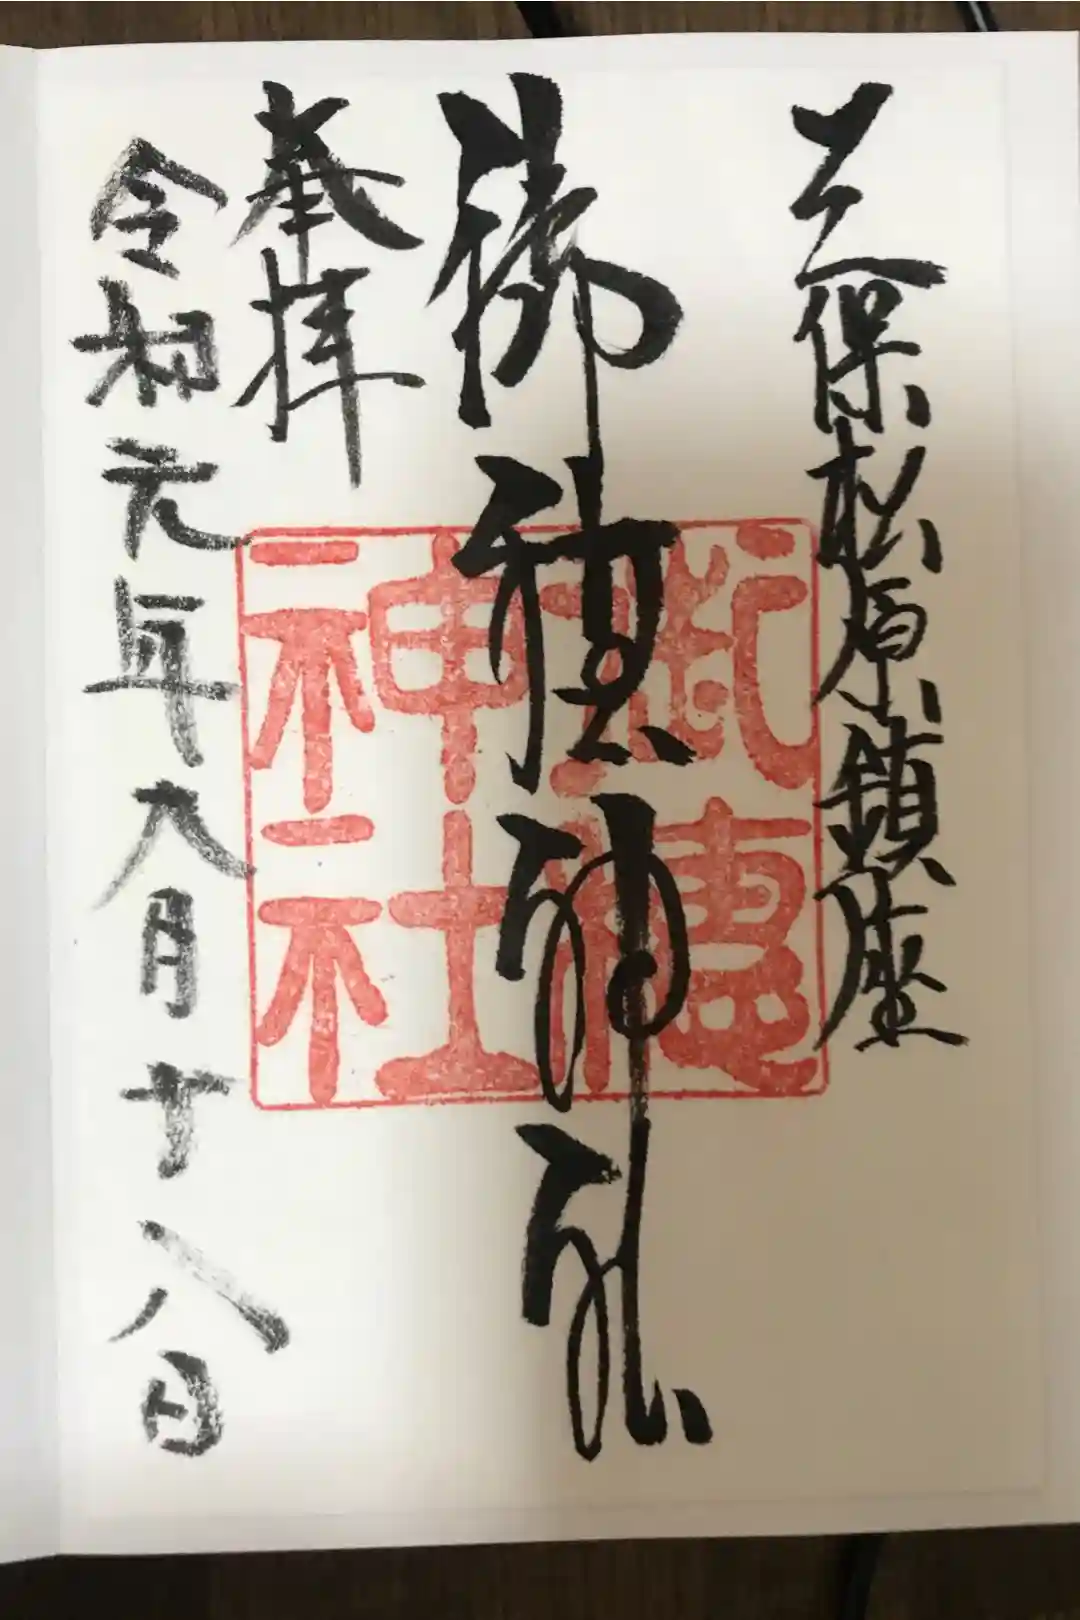 三保松原鎮座
御穂神社
奉拝
令和元年八月十八日
御穂
神社